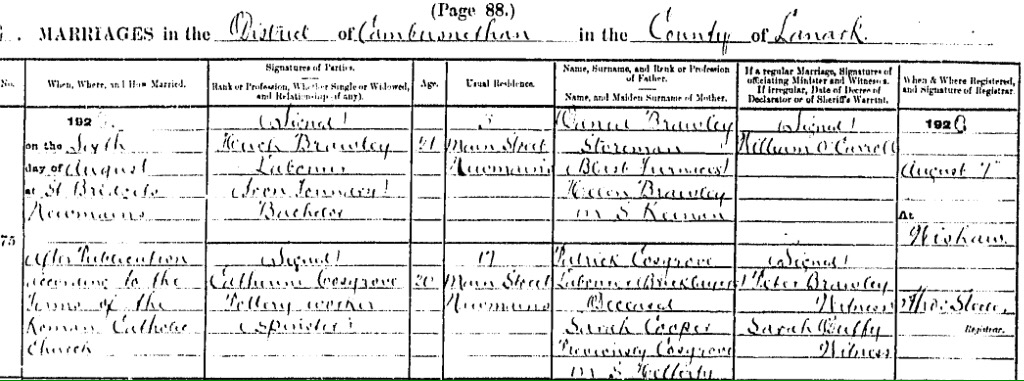 (Page 88.)
MARRIAGES in the District of Cambusnethan in the County of Lanark.
No.
When, Where, and How Married.
Signatures of Parties.
Rank or Profession, Whether Single or Widowed, and Relationship (if any).
Age.
Usual Residence.
Name, Surname, and Rank or Profession of Father.
Name, and Maiden Surname of Mother.
If a regular Marriage, Signatures of officiating Minister and Witnesses. If irregular, Date of Decree of Declarator or of Sheriff's Warrant.
When & Where Registered, and Signature of Registrar.
75
192
on the Sixth
day of August
at St Bridgets
Newmains
After Publication
according to the
Forms of the
Roman Catholic
Church
(Signed)
Hugh Brawley
Labourer
(Iron Foundry)
Bachelor
(Signed)
Catherine Cosgrove
Pottery worker
(Spinster)
21
20
3
Main Street
Newmains
17
Main Street
Newmains
Daniel Brawley
Storeman
(Blast Furnaces)
Helen Brawley
m S Keenan
Patrick Cosgrove
Labourer Bricklayer
Deceased
Sarah Cooper
Previously Cosgrove
m S Hefferty
(Signed)
William O'Carroll
(Signed)
Peter Brawley
Witness
Sarah Duffy
Witness
192
August 7
At
Wishaw
Registrar.